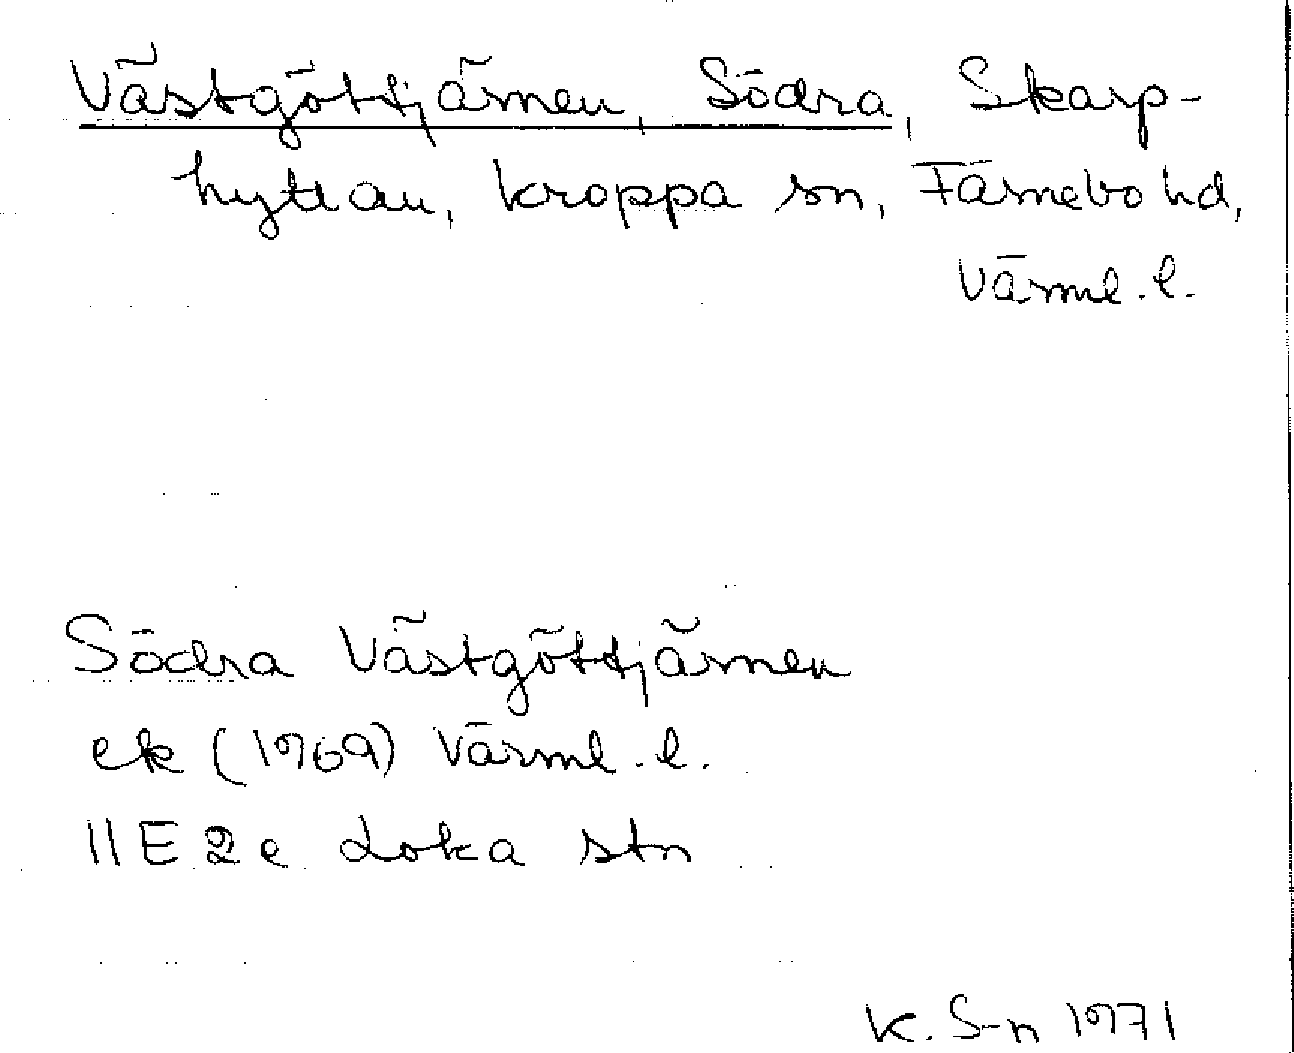 Västgöttjärnen, Södra, Skarp-
hyttan, Kroppa sn, Färnebo hd,
Värml. l.
Södra Västgöttjärnen
ek (1969) Värml. l.
11E 2e Loka stn
K. S-n 1971